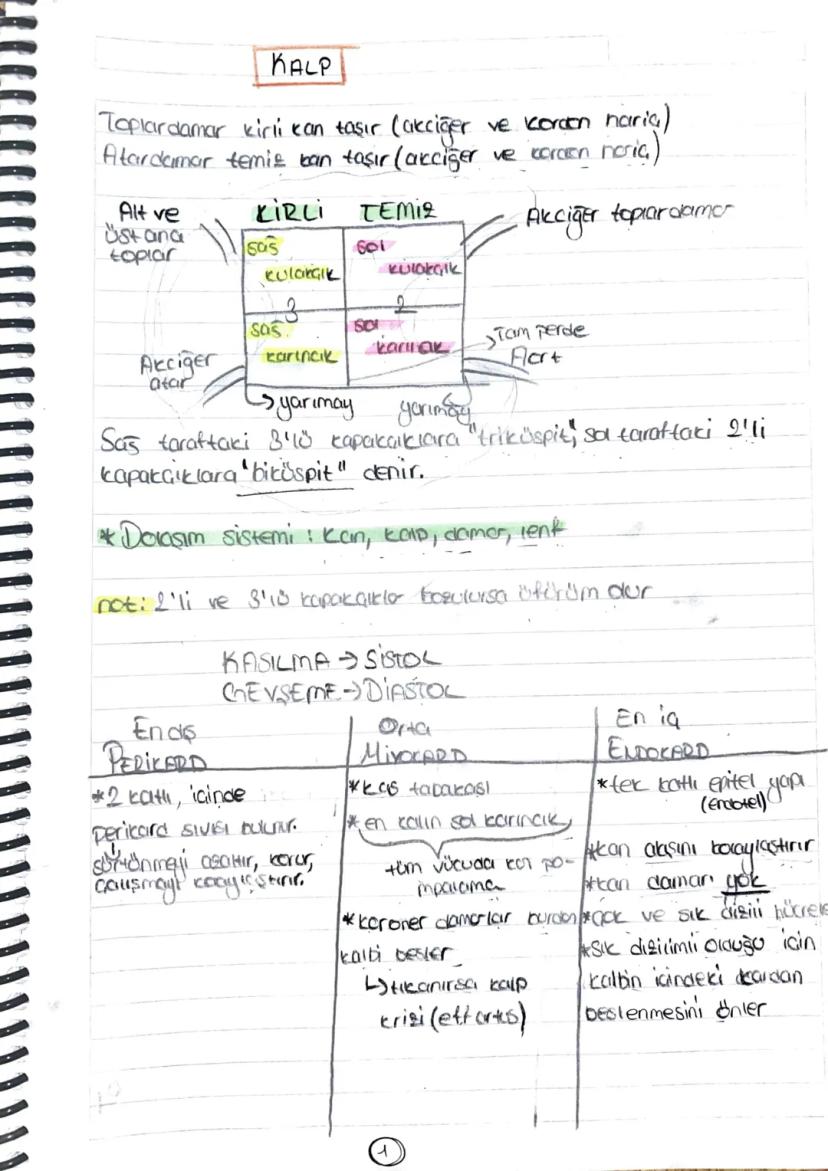 KALP
Toplardamar kirli kan taşır (akciğer ve kordon hariç)
Atardamar temiz kan taşır (akciğer ve kordon hariç)
Alt ve
üst ana
toplar
KİRLİ TEMİZ
Akciğer toplardamar
sağ
kulakçık
sol
kulakçık
3
2
sağ
karıncık
sol
karıncık
Tam perde
Aort
Akciğer
atar
yarımay
yarımay
Sağ taraftaki 3'lü kapakçıklara "triküspit", sol taraftaki 2'li
kapakçıklara "biküspit" denir.
* Dolaşım sistemi : Kan, kalp, damar, lenf
not: 2'li ve 3'lü kapakçıklar bozulursa üfürüm olur
KASILMA → SİSTOL
GEVŞEME → DİASTOL
En dış
PERİKARD
* 2 katlı, içinde
perikard sıvısı bulunur.
sürtünmeyi azaltır, korur,
çalışmayı kolaylaştırır.
Orta
MİYOKARD
* kas tabakası
* en kalın sol karıncık
tüm vücuda kan po-
mpalama
* koroner damarlar burdan
kalbi besler
↳ tıkanırsa kalp
krizi (enfarktüs)
En iç
ENDOKARD
* tek katlı epitel yapı
(endotel)
* kan akışını kolaylaştırır
* kan damarı yok
* çok ve sık dizili hücrele
* sık dizilimli olduğu için
kalbin içindeki kandan
beslenmesini önler
1